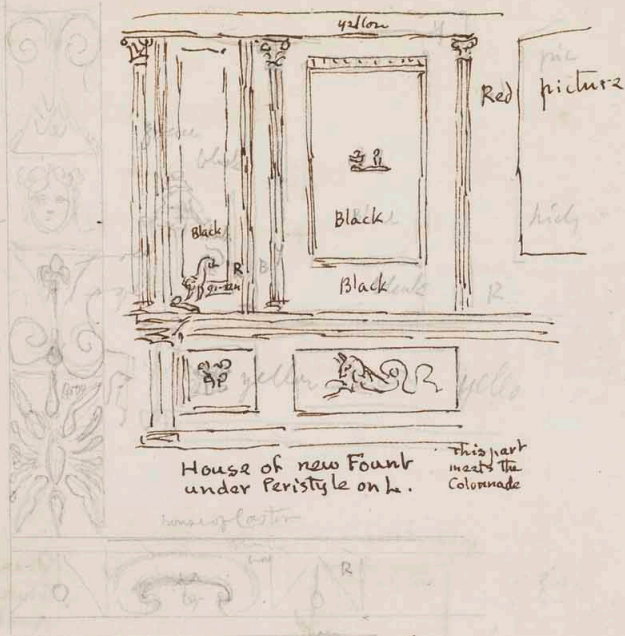 yellow
Red
picture
Black
R
green
Black
Black
R
yellow
House of new Fount
under Peristyle on L.
This part
meets the
Colonnade
House of Castor
R